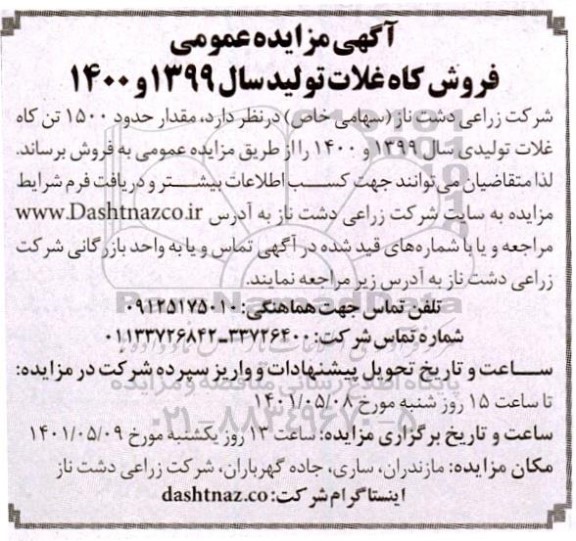 آگهی مزایده عمومی
فروش کاه غلات تولید سال ۱۳۹۹ و ۱۴۰۰
شرکت زراعی دشت ناز (سهامی خاص) در نظر دارد، مقدار حدود ۱۵۰۰ تن کاه
غلات تولیدی سال ۱۳۹۹ و ۱۴۰۰ را از طریق مزایده عمومی به فروش برساند.
لذا متقاضیان می‌توانند جهت کسب اطلاعات بیشتر و دریافت فرم شرایط
مزایده به سایت شرکت زراعی دشت ناز به آدرس www.Dashtnazco.ir
مراجعه و یا با شماره‌های قید شده در آگهی تماس و یا به واحد بازرگانی شرکت
زراعی دشت ناز به آدرس زیر مراجعه نمایند.
تلفن تماس جهت هماهنگی: ۰۹۱۲۵۱۷۵۰۱۰
شماره تماس شرکت: ۳۳۷۲۶۴۰۰-۰۱۱۳۳۷۲۶۸۴۲
ساعت و تاریخ تحویل پیشنهادات و واریز سپرده شرکت در مزایده:
تا ساعت ۱۵ روز شنبه مورخ ۱۴۰۱/۰۵/۰۸
ساعت و تاریخ برگزاری مزایده: ساعت ۱۳ روز یکشنبه مورخ ۱۴۰۱/۰۵/۰۹
مکان مزایده: مازندران، ساری، جاده گهرباران، شرکت زراعی دشت ناز
اینستاگرام شرکت: dashtnaz.co
پایگاه اطلاع رسانی مناقصه و مزایده
۰۲۱-۸۸۳۴۹۶۷۰-۵